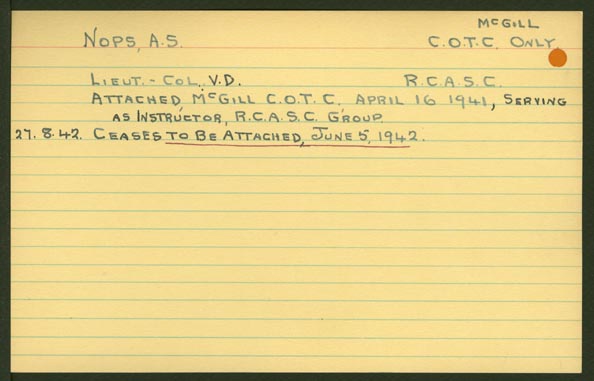 McGILL
NOPS, A.S. C.O.T.C. ONLY.
LIEUT.-COL., V.D. R.C.A.S.C.
ATTACHED, McGILL C.O.T.C. APRIL 16 1941, SERVING
AS INSTRUCTOR, R.C.A.S.C. GROUP.
27.8.42. CEASES TO BE ATTACHED, JUNE 5, 1942.